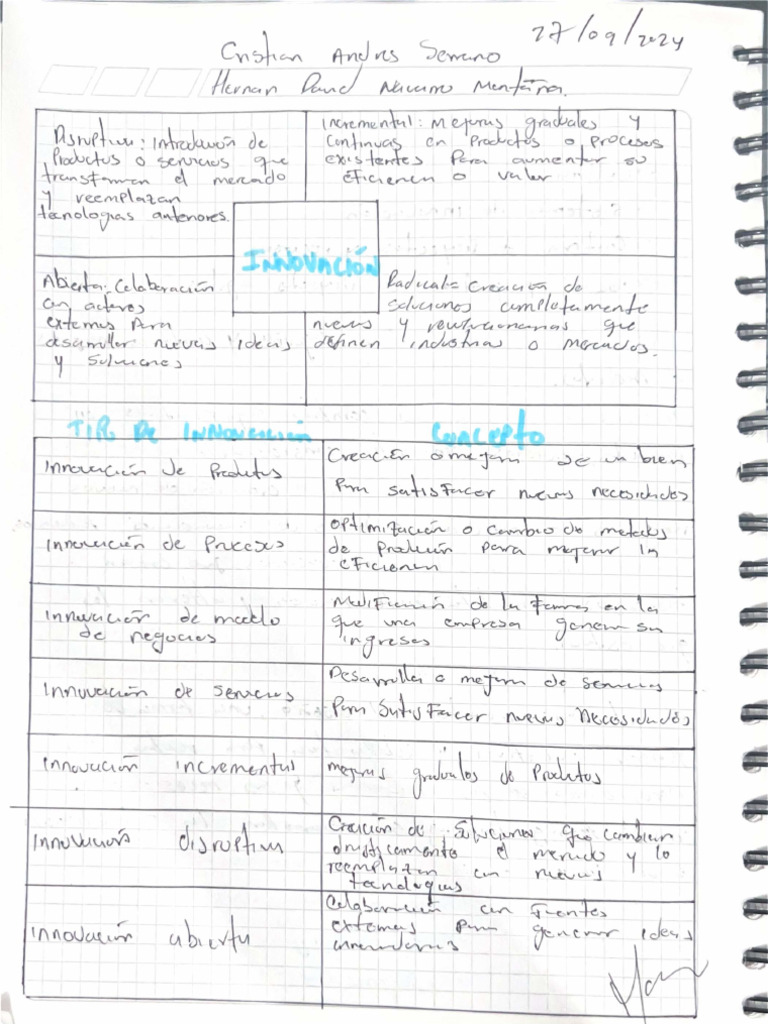 27/09/2024
Cristian Andres Serrano
Hernan David Navarro Montaña.
Disruptiva: Introducción de
Productos o servicios que
transforman el mercado
y reemplazan
tecnologías anteriores.
Incremental: Mejoras graduales y
continuas en Productos o procesos
existentes Para aumentar su
eficiencia o valor
INNOVACIÓN
Abierta: Colaboración
con actores
externos Para
desarrollar nuevas ideas
y Soluciones
Radical= creación de
soluciones completamente
nuevas y revolucionarias que
definen industrias o mercados.
TIPO DE INNOVACIÓN
CONCEPTO
Innovación de Productos
Creación o mejora de un bien
Para satisfacer nuevas necesidades
Innovación de Procesos
Optimización o cambio de metodos
de Producción para mejorar la
eficiencia
Innovación de modelo
de negocios
Modificación de la forma en la
que una empresa genera sus
ingresos
Innovación de servicios
Desarrollo o mejora de servicios
Para Satisfacer nuevas Necesidades
Innovación incremental
mejoras graduales de Productos
Innovación disruptiva
Creación de Soluciones que cambian
drasticamente el mercado y lo
reemplazan con nuevas
tecnologías
Innovación abierta
Colaboración con fuentes
externas para generar ideas
innovadoras